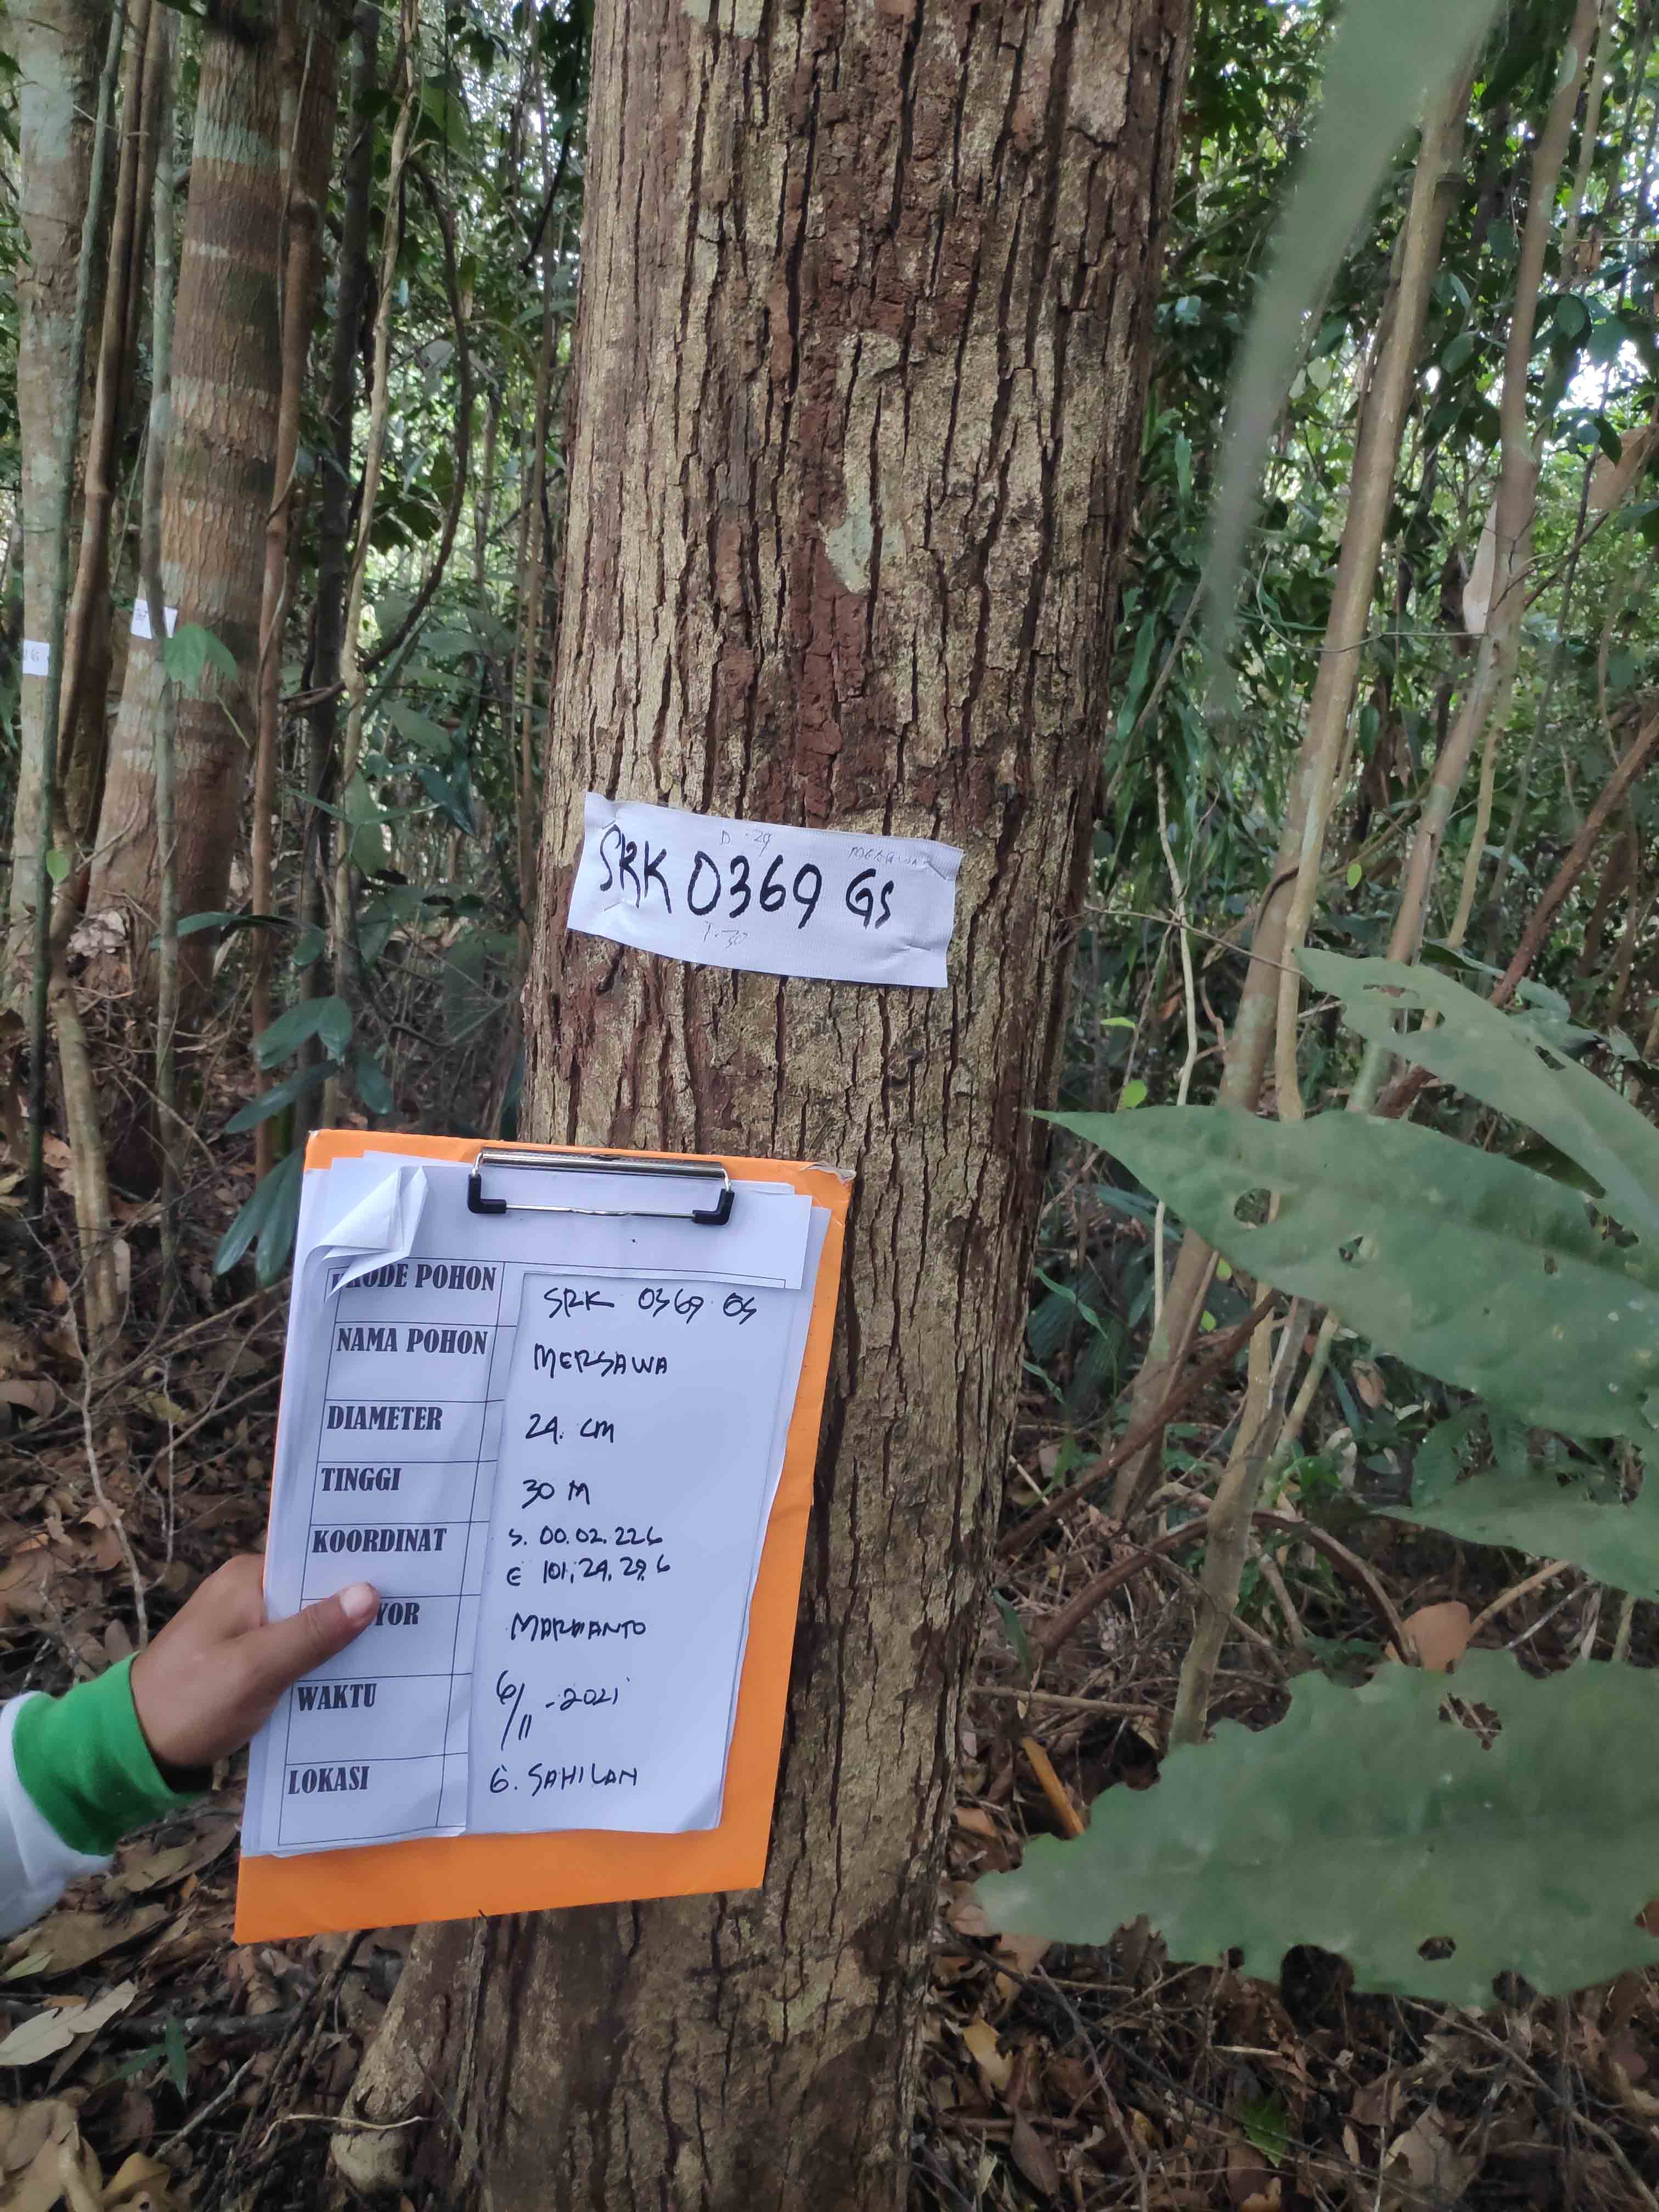 D -29
MERSAWA
SRK 0369 GS
T-30
KHODE POHON
SRK 0369 GS
NAMA POHON
MERSAWA
DIAMETER
29. CM
TINGGI
30 M
KOORDINAT
S. 00.02.226
E 101,29,29,6
YOR
WAKTU
6/11 -2021
LOKASI
G. SAHILAN